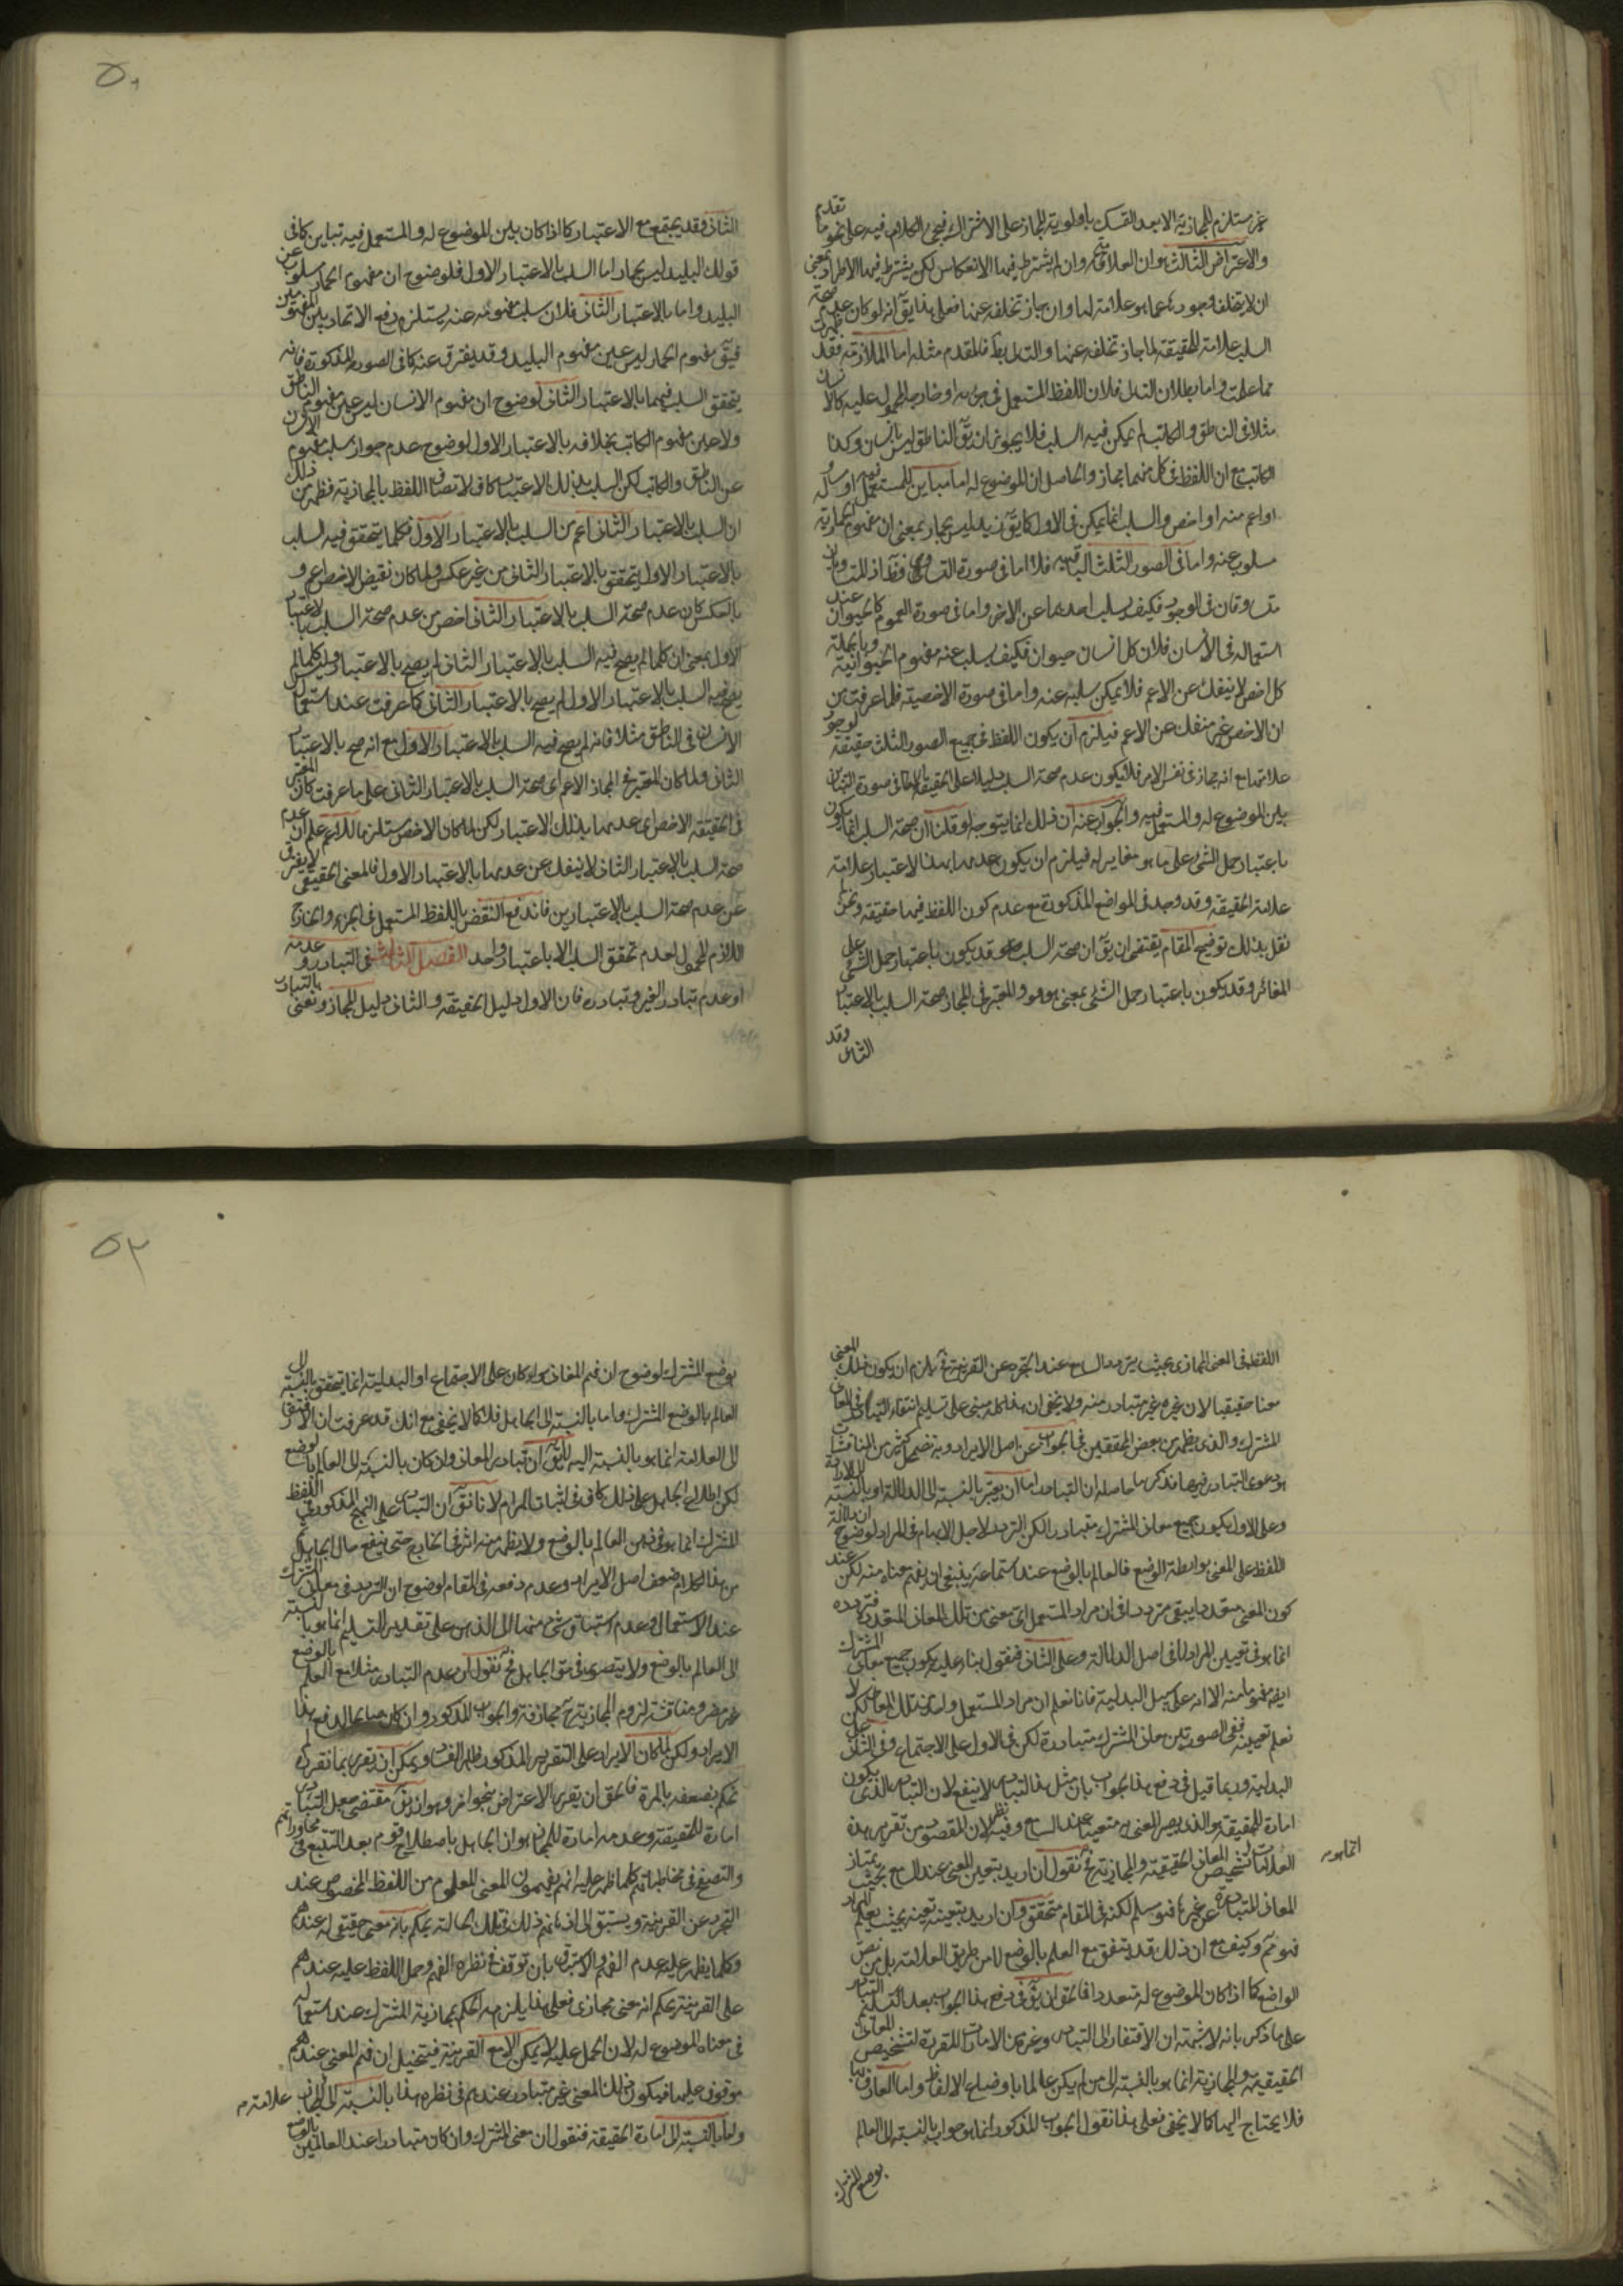 غير مستلزم للمجازية الا بعد التمسك باولوية المجاز على الاشتراك فيجئ الكلام فيه على نحو ما تقدم
والاعتراض الثالث هو ان العلامة وان لم يشترط فيها الانعكاس لكن يشترط فيها الاطراد بمعنى
ان لا يتخلف وجودها عما هو علامة لها وان جاز تخلفه عنها فعلى هذا يق انه لو كان عدم صحة
السلب علامة للحقيقة لما جاز تخلفه عنها والتالي بط فالمقدم مثله اما الملازمة فقد ظهرت
مما علمت واما بطلان التالي فلان اللفظ المستعمل في جزئه او خارجه المحمول عليه كالانسان
مثلا في الناطق والكاتب لم يمكن فيه السلب فلا يجوز ان يق الناطق ليس بانسان وكذا
الكاتب مع ان اللفظ في كل منهما مجاز والحاصل ان الموضوع له اما مباين للمستعمل فيه او مساو له
او اعم منه او اخص والسلب انما يمكن في الاول كما يق زيد ليس بحمار بمعنى ان مفهوم الحمارية
مسلوب عنه واما في الصور الثلث الباقية فلا اما في صورة التساوي فظ اذ المتساويان
متساوقان في الوجود فكيف يسلب احدهما عن الاخر واما في صورة العموم كالحيوان عند
استعماله في الانسان فلان كل انسان حيوان فكيف يسلب عنه مفهوم الحيوانية وبالجملة
كل اخص لا ينفك عن الاعم فلا يمكن سلبه عنه واما في صورة الاخصية فلما عرفت من
ان الاخص غير منفك عن الاعم فيلزم ان يكون اللفظ في جميع الصور الثلث حقيقة لوجود
علامتها مع انه مجاز في نفس الامر فلا يكون عدم صحة السلب دليلا على الحقيقة الا في صورة التباين
بين الموضوع له والمستعمل فيه والجواب عنه ان ذلك انما يتوجه لو قلنا ان صحة السلب انما يكون
باعتبار حمل الشئ على ما هو مغاير له فيلزم ان يكون عدمها بهذا الاعتبار علامة
علامة الحقيقة وقد وجد في المواضع المذكورة مع عدم كون اللفظ فيها حقيقة ونحن لم
نقل بذلك توضيح المقام يقتضي ان يق ان صحة السلب قد يكون باعتبار حمل الشئ على
المغاير وقد يكون باعتبار حمل الشئ بمعنى هو هو والمعتبر في المجاز صحة السلب بالاعتبار
الثاني وقد
٥٠
الثاني وقد يجتمع مع الاعتبار كما اذا كان بين الموضوع له والمستعمل فيه تباين كما في
قولك البليد ليس بحمار اما السلب بالاعتبار الاول فلوضوح ان مفهوم الحمار مسلوب عن
البليد واما بالاعتبار الثاني فلان سلب مفهومه عنه يستلزم رفع الاتحاد بين المفهومين
فيق مفهوم الحمار ليس عين مفهوم البليد وقد يفترق عنه كما في الصور المذكورة فانه
يتحقق السلب فيهما بالاعتبار الثاني لوضوح ان مفهوم الانسان ليس عين مفهوم الناطق
ولا عين مفهوم الكاتب بخلافه بالاعتبار الاول لوضوح عدم جواز سلب مفهوم الانسان
عن الناطق والكاتب لكن السلب بذلك الاعتبار كاف لاتصاف اللفظ بالمجازية فظهر من ذلك
ان السلب بالاعتبار الثاني اعم من السلب بالاعتبار الاول فكلما يتحقق فيه السلب
بالاعتبار الاول يتحقق بالاعتبار الثاني من غير عكس ولما كان نقيض الاخص اعم و
بالعكس كان عدم صحة السلب بالاعتبار الثاني اخص من عدم صحة السلب بالاعتبار
الاول بمعنى ان كلما لم يصح فيه السلب بالاعتبار الثاني لم يصح بالاعتبار وليس كلما لم
يصح فيه السلب بالاعتبار الاول لم يصح بالاعتبار الثاني كما عرفت عند استعمال
الانسان في الناطق مثلا فانه لم يصح فيه السلب بالاعتبار الاول مع انه صح بالاعتبار
الثاني ولما كان المعتبر في المجاز الاعم اي صحة السلب بالاعتبار الثاني على ما عرفت كان المعتبر
في الحقيقة الاخص اي عدمها بذلك الاعتبار لكن لما كان الاخص مستلزما للاعم علم ان عدم
صحة السلب بالاعتبار الثاني لا ينفك عن عدمها بالاعتبار الاول فالمعنى الحقيقي لا يفترق
عن عدم صحة السلب بالاعتبارين فاندفع النقض باللفظ المستعمل في الجزء والخارج
اللازم المحمول لعدم تحقق السلب الا باعتبار واحد الفصل الثالث في التبادر وعدمه
او عدم تبادر الغير وتبادره فان الاول دليل الحقيقة والثاني دليل المجاز ونعني بالتبادر
اللفظ في المعنى المجازي بحيث يتردد السامع عند التجرد عن القرينة فح يلزم ان يكون ذلك المعنى
معنا حقيقيا لان غيره غير متبادر منه ولا يخفى ان هذا كله مبني على تسليم انتفاء التبادر في المعاني
المشترك والذي يظهر من بعض المحققين في الجواب عن اصل الايراد وبه تضمحل كثير من المناقشات
هو دعوى التبادر فيها فذكر ما حاصله ان التبادر اما ان يعتبر بالنسبة الى الدلالة او بالنسبة الى الارادة
وعلى الاول يكون جميع معاني المشترك متبادرا لكن التردد لاجل الابهام في المراد لوضوح ان دلالة
اللفظ على المعنى بواسطة الوضع فالعالم بالوضع عند استماعه ينبغي ان يفهم معناه منه لكن عند
كون المعنى متعددا يبقى مترددا في ان مراد المستعمل اي معنى من تلك المعاني المتعددة فتردده
انما هو في تعيين المراد لا في اصل الدلالة وعلى الثاني فنقول بناء عليه يكون جميع معاني المشترك
ايضا مفهوما منه الا انه على سبيل البدلية فانا نعلم ان مراد المستعمل واحد من تلك المعاني لكن لا
نعلم تعيينه ففي الصورتين معاني المشترك متبادرة لكن في الاول على الاجتماع وفي الثاني على
البدلية وربما قيل في دفع هذا الجواب بان مثل هذا التبادر لا ينفع لان التبادر الذي يكون
امارة للحقيقة هو الذي يصير المعنى به متعينا عند السامع وفيه نظر لان المقصود من تقرير هذه
العلامات تشخيص المعاني الحقيقية والمجازية فح نقول ان اريد بتعيين المعنى عند السامع بحيث يمتاز
انما هو
المعاني المتبادرة عن غيرها فهو مسلم لكنه في المقام متحقق وان اريد بتعينه تعينه بحيث يعلم المراد
فهو مم وكيف مع ان ذلك قد يتفق مع العلم بالوضع لا من طريق العلامة بل من نص
الواضع كما اذا كان الموضوع له متعددا فالحق ان يق في دفع هذا الجواب بعد تسليم التبادر
على ما ذكر بانه لا شبهة ان الافتقار الى التبادر وغيره من الامارات المقررة لتشخيص المعاني
الحقيقية والمجازية انما هو بالنسبة الى من لم يكن عالما باوضاع الالفاظ واما العارف بها
فلا يحتاج اليها كما لا يخفى فعلى هذا نقول الجواب المذكور انما هو جواب بالنسبة الى العالم
بوضع المشترك
٥٢
بوضع المشترك لوضوح ان فهم المعاني سواء كان على الاجتماع او البدلية انما يتحقق بالنسبة الى
العالم بالوضع المشترك واما بالنسبة الى الجاهل فلا كما لا يخفى مع انك قد عرفت ان الافتقار
الى العلامة انما هو بالنسبة اليه لا يق ان تبادر المعاني وان كان بالنسبة الى العالم بالوضع
لكن اطلاع الجاهل على ذلك كاف في اثبات المرام لانا نق ان التبادر على النهج المذكور في اللفظ
المشترك انما هو في ذهن العالم بالوضع ولا يظهر منه اثر في الخارج حتى ينفع حال الجاهل
من هذا الكلام ضعف اصل الايراد وعدم دفعه في المقام لوضوح ان التردد في معاني المشترك
عند الاستعمال وعدم استباق شئ منها الى الذهن على تقدير التسليم انما هو بالنسبة
الى العالم بالوضع ولا يتصور في حق الجاهل فح نقول ان عدم التبادر مثلا مع العلم بالوضع
غير مضر ومناقشة لزوم المجازية ح مجازفة والجواب المذكور وان كان صالحا لدفع هذا
الايراد ولكن لما كان الايراد على التقرير المذكور ظاهر الفساد ويمكن ان يقرر بما تقرر له
نحكم بضعفه بالمرة فالحق ان يقرر الاعتراض بنحو اخر وهو ان يق مقتضى جعل التبادر
امارة للحقيقة وعدمه امارة للمجاز هو ان الجاهل باصطلاح قوم بعد التتبع في محاوراتهم
والتصفح في مخاطباتهم كلما ظهر عليه انهم يفهمون المعنى المعلوم من اللفظ المخصوص عند
التجرد عن القرينة ويستبق الى اذهانهم ذلك فتلك الحالة يحكم بانه معنى حقيقي له عندهم
وكلما يظهر عليه عدم الفهم والاستباق بان توقف في نظره الفهم وحمل اللفظ عليه عندهم
على القرينة يحكم انه معنى مجازي فعلى هذا يلزم الحكم بمجازية المشترك عند استعماله
في معناه الموضوع له لان الحمل عليه لا يمكن الا مع القرينة فيتخيل ان فهم المعنى عندهم
موقوف عليها فيكون ذلك المعنى غير متبادر عندهم في نظره هذا بالنسبة الى المجاز
علامة
واما بالنسبة الى امارة الحقيقة فنقول ان معنى المشترك وان كان متبادرا عند العالمين بالوضع